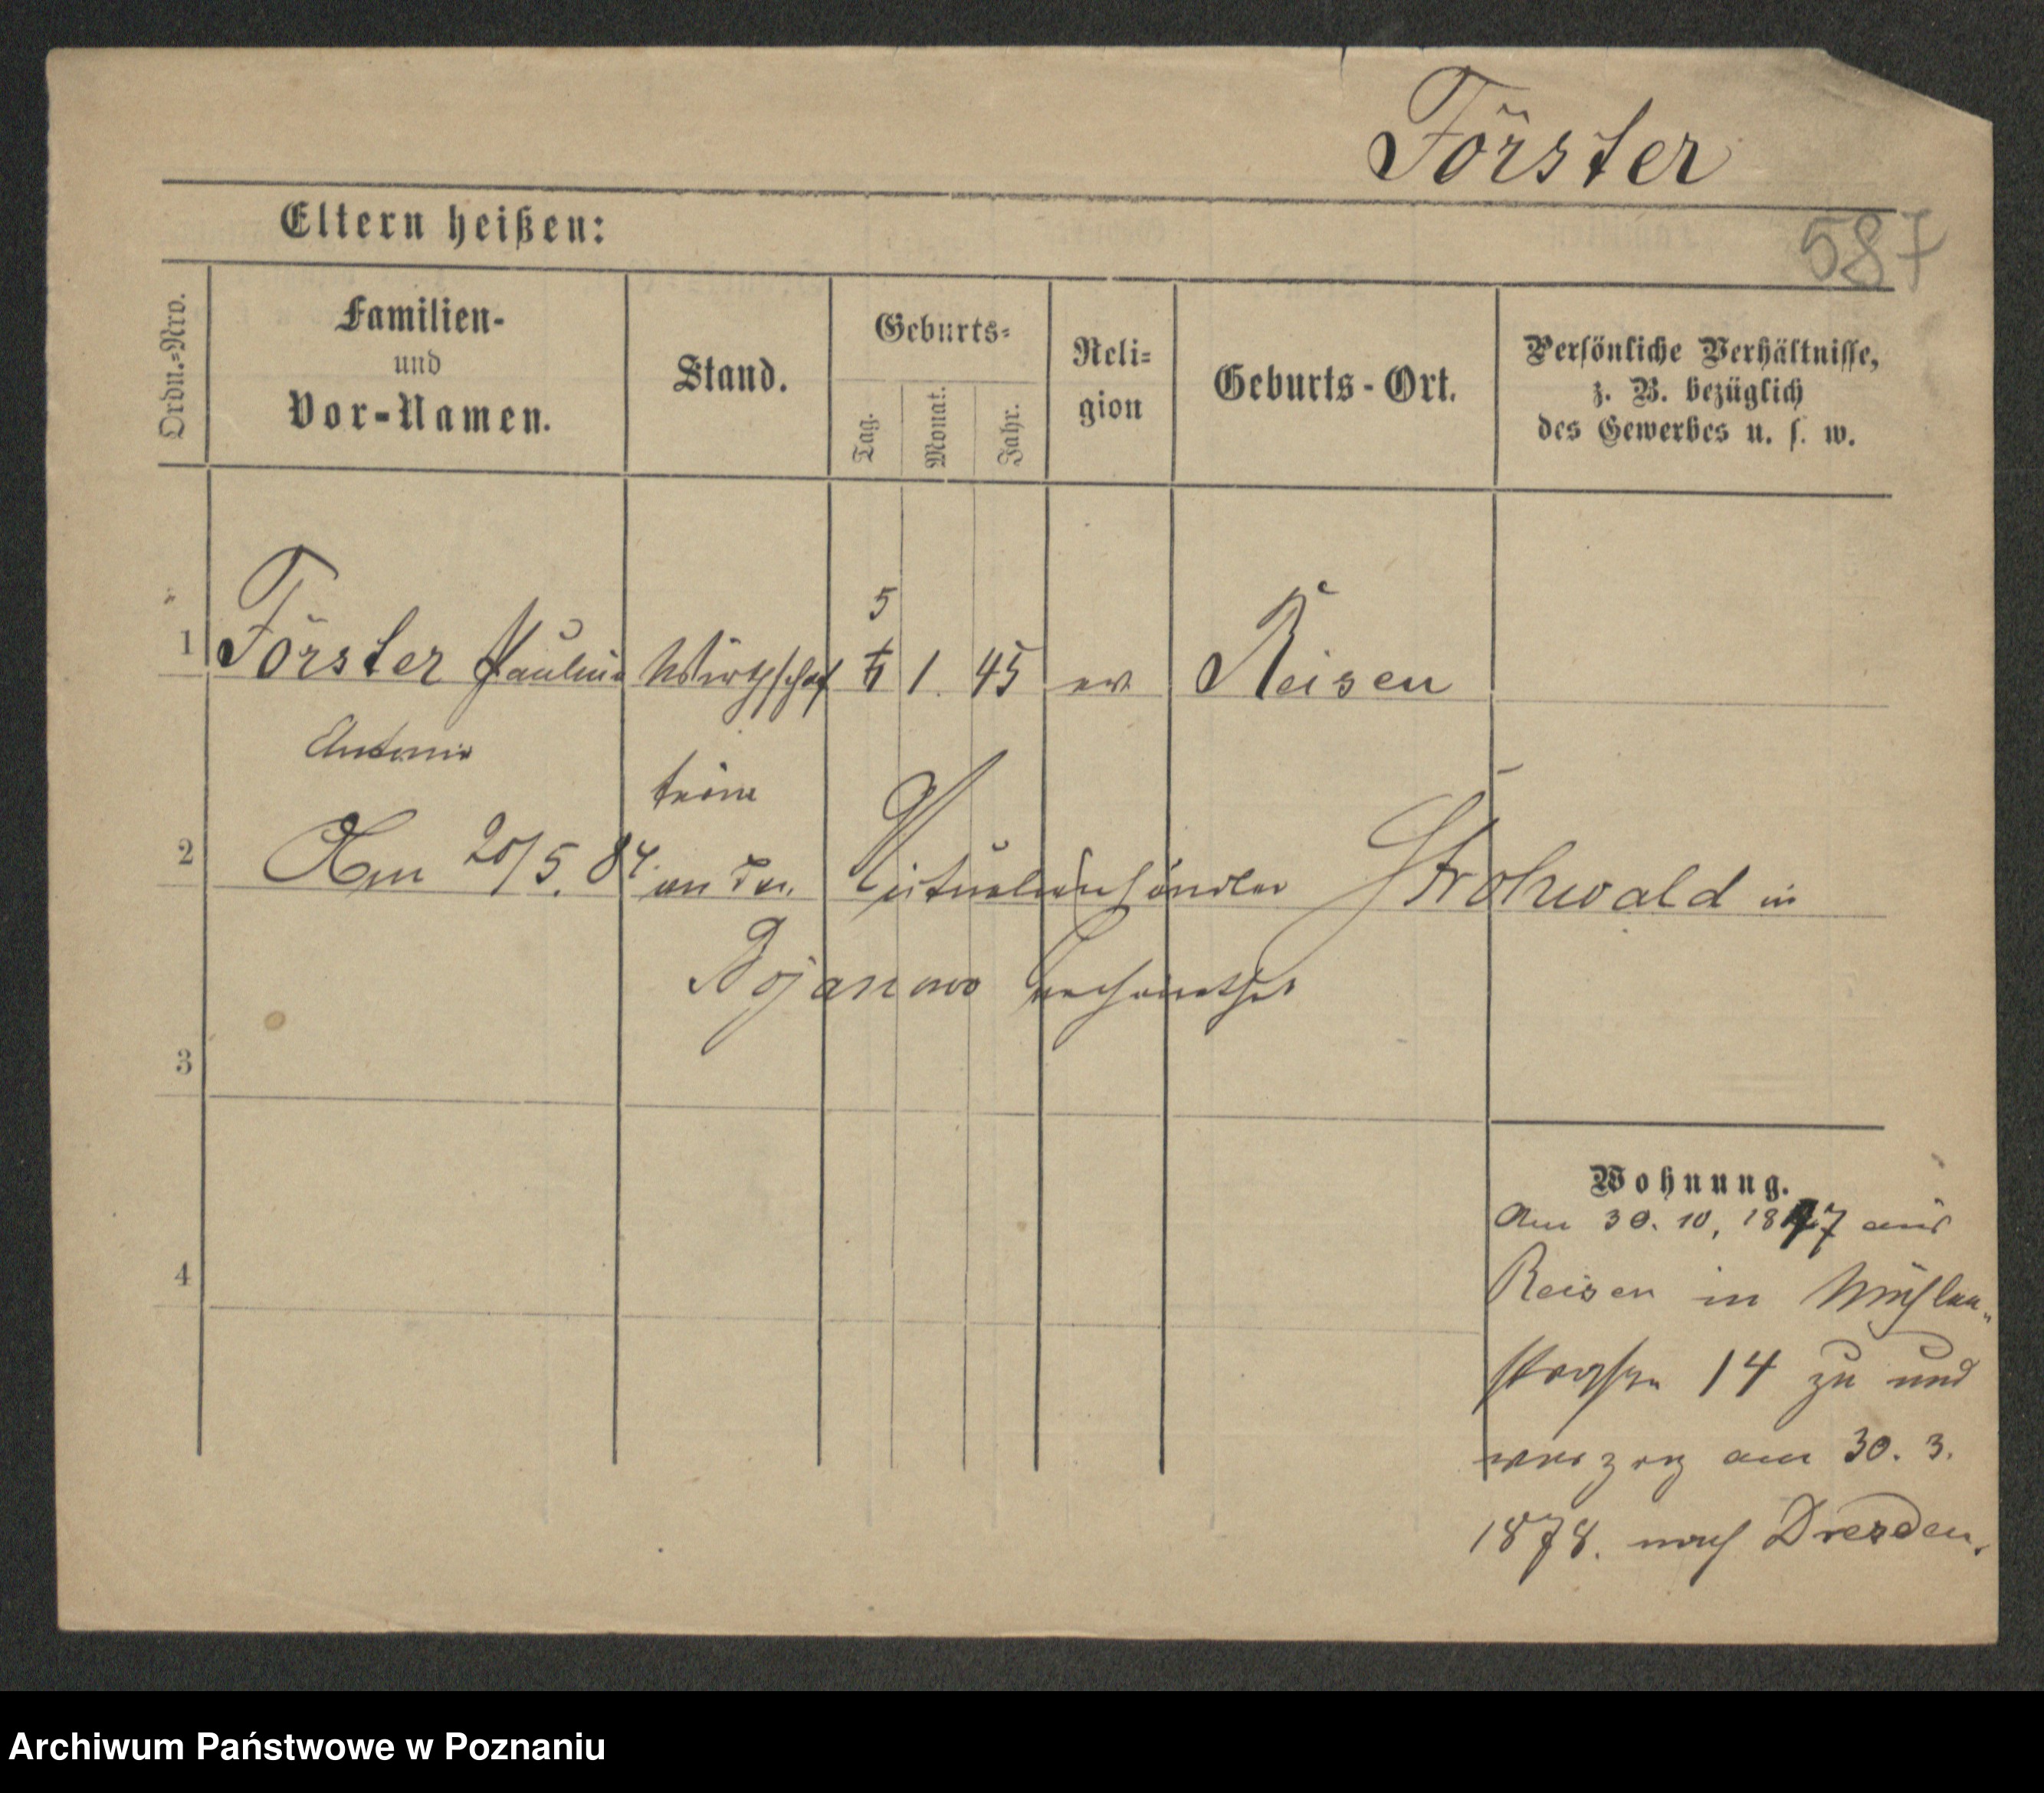 Förster
587
Eltern heißen:
Ordn.=Nro.
Familien-
und
Vor-Namen.
Stand.
Geburts=
Tag.
Monat.
Jahr.
Reli=
gion
Geburts-Ort.
Persönliche Verhältnisse,
z. B. bezüglich
des Gewerbes u. s. w.
5
1 Förster Pauline Wirthschaf 6 1. 45 ev Reisen
Antonie
terin
2 Am 20/5. 84 an den Victualienhändler Strohwald in
Bojanowo verheirathet
3
4
Wohnung.
Am 30. 10. 1877 aus
Reisen in Mühlen-
straße 14 zu und
verzog am 30. 3.
1878. nach Dresden.
Archiwum Państwowe w Poznaniu